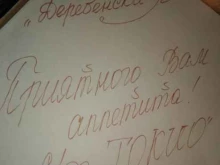 "Деревенски
Приятного Вам
аппетита!
ТОКИО"